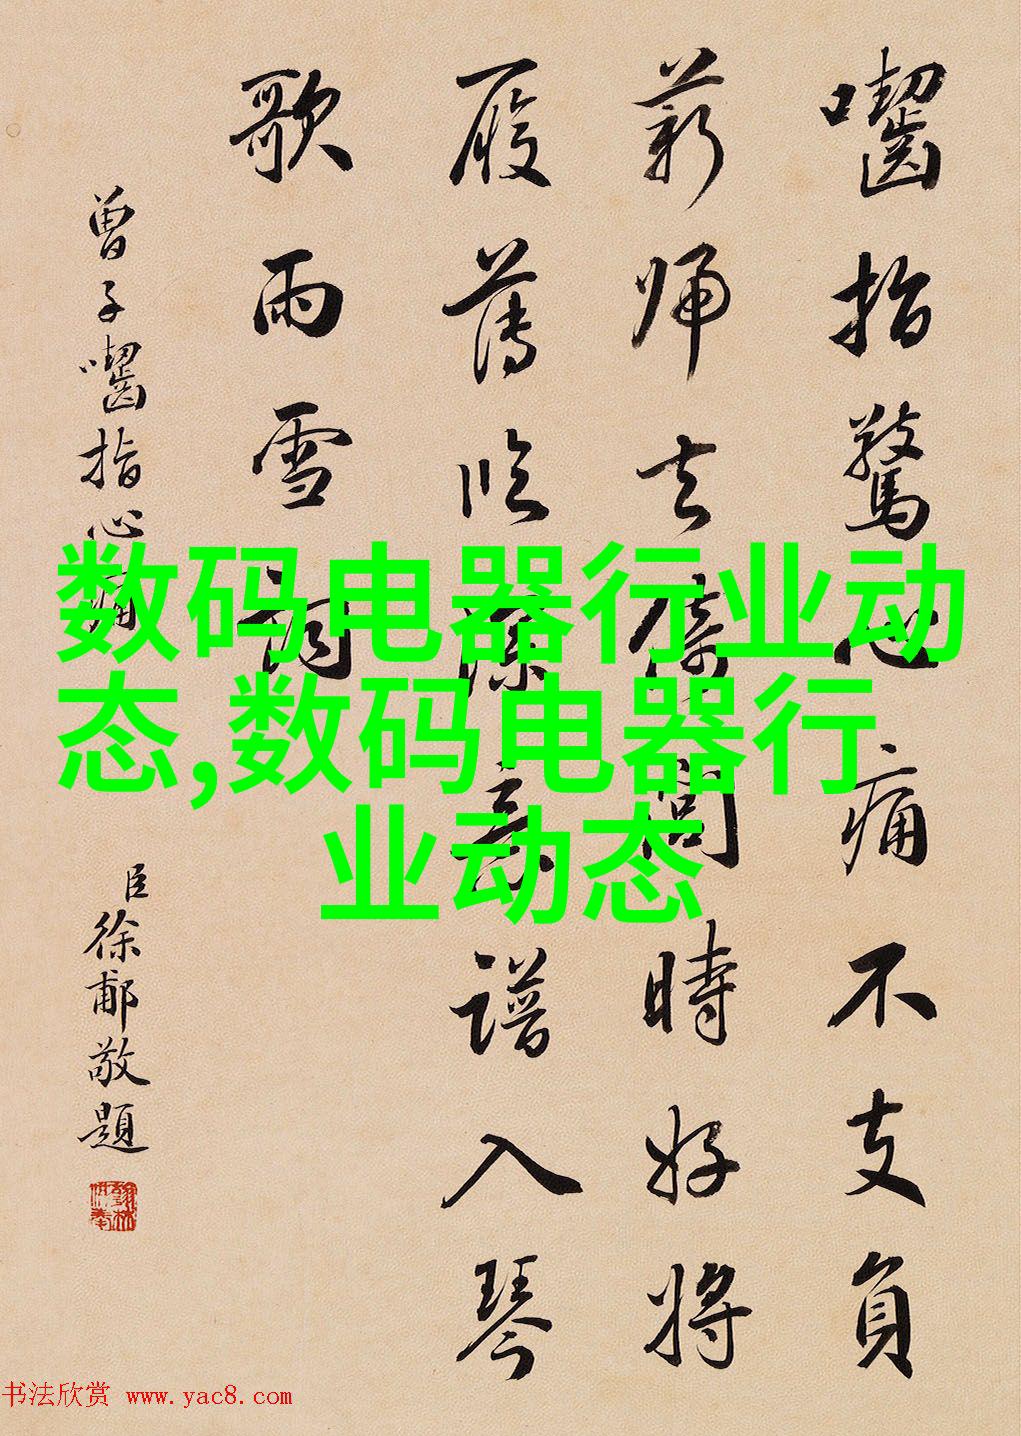 囓指驚心痛不支負
薪歸去問時好將
履薄臨深意譜入琴
歌雨雪詞
曾子囓指心痛
臣徐郙敬題
数码电器行业动
态,数码电器行
业动态
书法欣赏 www.yac8.com